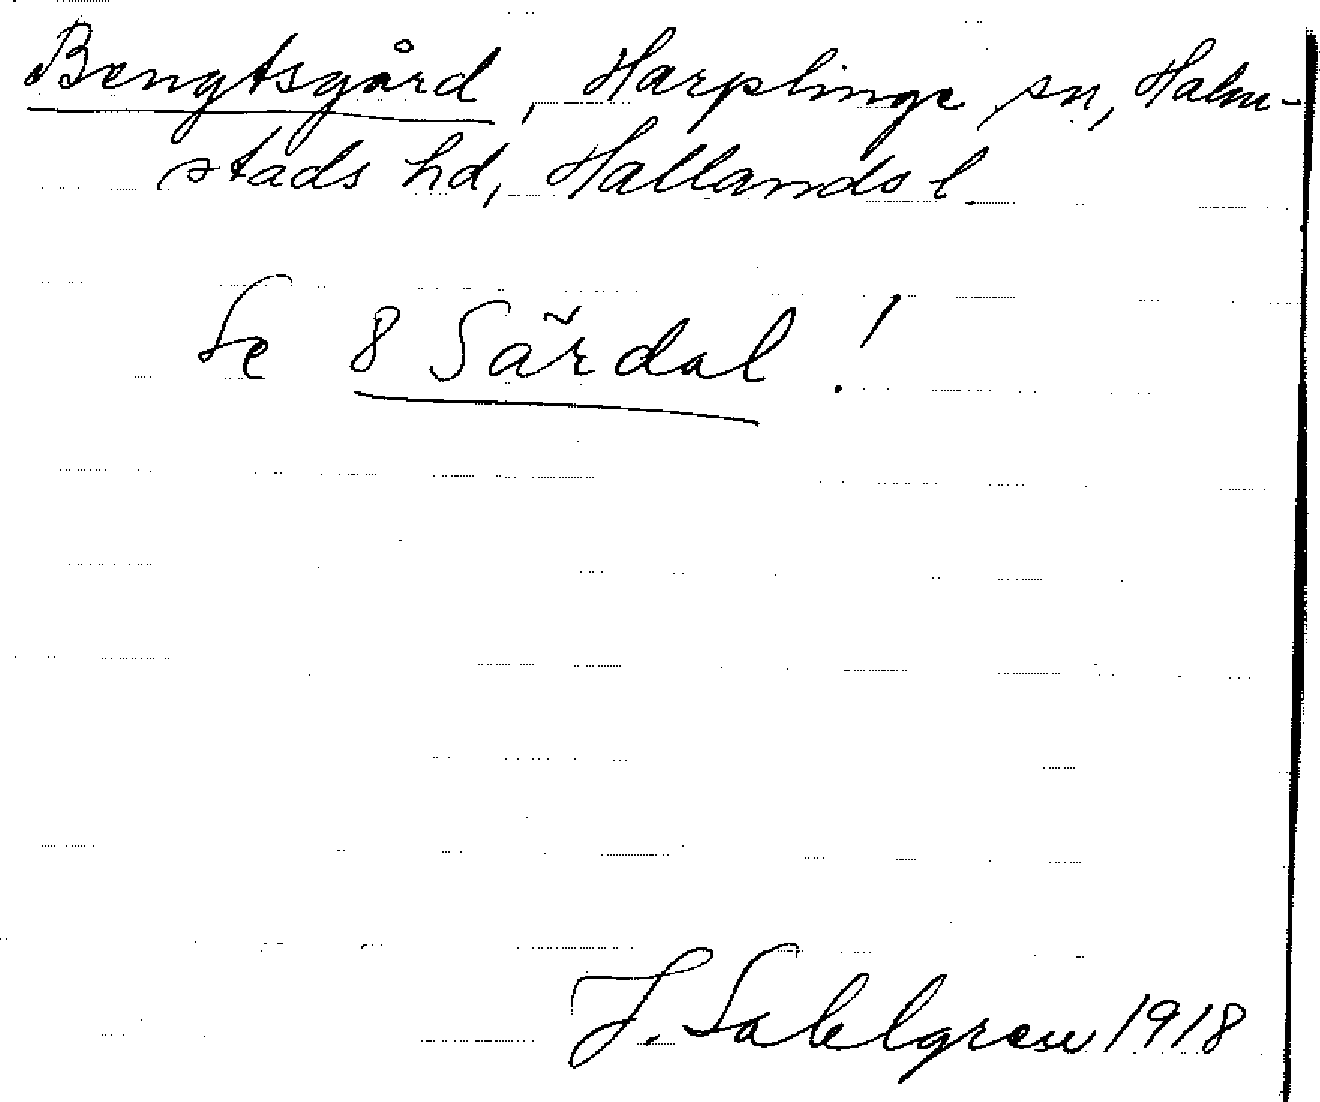 Bengtsgård, Harplinge sn, Halm-
stads hd, Hallands l
Se 8 Särdal!
J. Sahlgren 1918